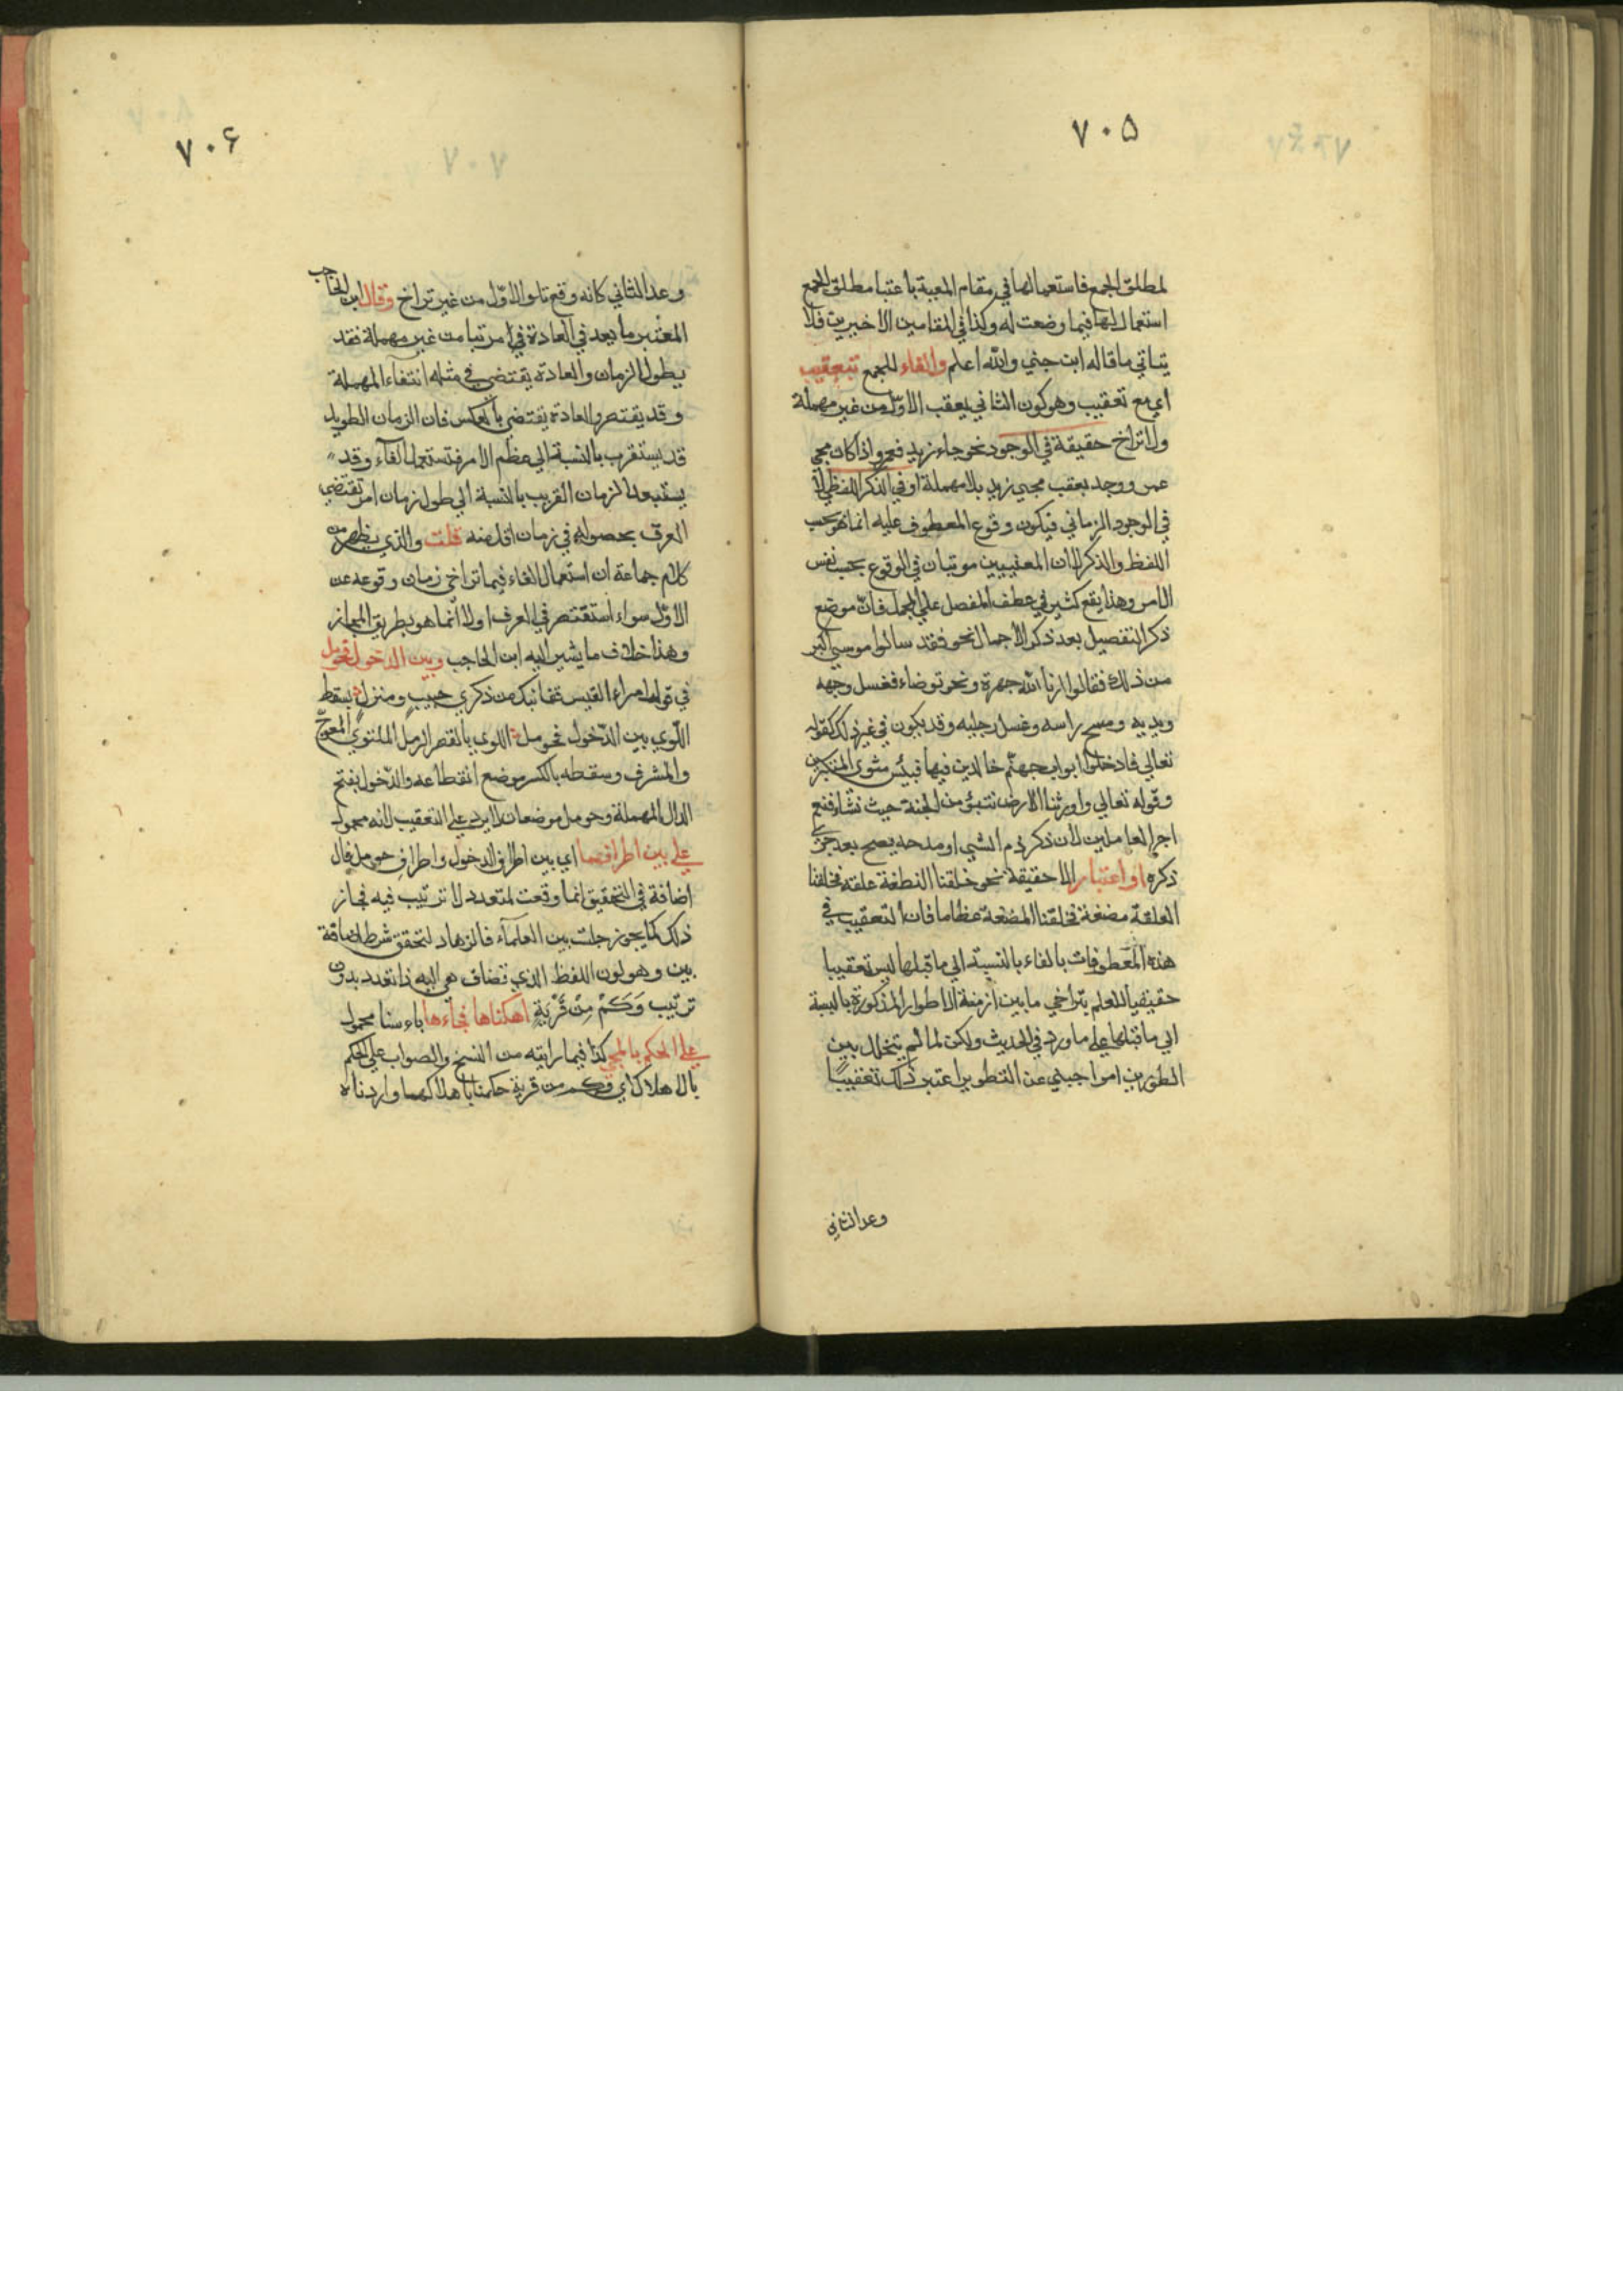 ٧٠٥
لمطلق الجمع فاستعمالها في مقام المعية باعتبا مطلق الجمع
استعمال لها فيما وضعت له وكذا في المقامين الاخيرين فلا
يتاتي ما قاله ابن جني والله اعلم والفاء للجمع بتعقيب
اي مع تعقيب وهو كون الثاني يعقب الاول من غير مهملة
ولا تراخ حقيقة في الوجود نحو جاء زيد فعمرو اذا كان مجي
عمرو وجد بعقب مجي زيد بلا مهملة او في الذكر اللفظي لا
في الوجود الزماني فيكون وقوع المعطوف عليه انما هو بحسب
اللفظ والذكر لا ان المعنيين مرتبان في الوقوع بحسب نفس
الامر وهذا يقع كثير في عطف المفصل علي المجمل فان موضع
ذكر التفصيل بعد ذكر الاجمال نحو فقد سالوا موسي اكبر
من ذلك فقالوا ارنا الله جهرة ونحو توضاء فغسل وجهه
ويديه ومسح راسه وغسل رجليه وقد يكون في غير ذلك كقوله
تعالي فادخلوا ابواب جهنم خالدين فيها فبئس مثوى المتكبرين
وقوله تعالي واورثنا الارض نتبؤ من الجنة حيث نشاء فنعم
اجر العاملين لان ذكر ذم الشي او مدحه يصح بعد جري
ذكره او اعتبار الا حقيقة نحو خلقنا النطفة علقة فخلقنا
العلقة مضغة فخلقنا المضغة عظاما فان التعقيب في
هذه المعطوفات بالفاء بالنسبة الي ما قبلها ليس تعقيبا
حقيقيا للعلم بتراخي ما بين ازمنة الاطوار المذكورة بالنسبة
الي ما قبلها علي ما ورد في الحديث ولكن لما لم يتخلل بين
الطورين امر اجبني عن التطوير اعتبر ذلك تعقيبًا
وعد الثاني
٧٠۶
وعد الثاني كانه وقع تلو الاول من غير تراخ وقال ابن الحاجب
المعتبر ما يعد في العادة في امرتبا من غير مهملة فقد
يطول الزمان والعادة يقتضي في مثله انتفاء المهملة
وقد يقتصر والعادة يقتضي بالعكس فان الزمان الطويل
قد يستقرب بالنسبة الي عظم الامر فتستعمل الفاء وقد
يستبعد الزمان القريب بالنسبة الي طول زمان امر تقتضي
العرف بحصوله في زمان اقل منه قلت والذي يظهر من
كلام جماعة ان استعمال الفاء فيما تراخي زمان وقوعه عن
الاول سواء استقتصر في العرف اولا انما هو بطريق المجاز
وهذا خلاف ما يشير اليه ابن الحاجب وبين الدخول فحومل
في قول امراء القيس قفا نبك من ذكري حبيب ومنزل بسقط
اللوي بين الدخول فحومل اللوي بالقصر الرمل الملتوي المعوج
والمشرف وسقطه بالكسر موضع انقطاعه والدخول بفتح
الدال المهملة وحومل موضعان لا يرد علي التعقيب لانه محمول
علي بين اطرافهما اي بين اطراف الدخول واطراف حومل فال
اضافة في التحقيق انما وقعت لمتعدد لا ترتيب فيه فجاز
ذلك كما يجوز جلست بين العلماء فالزهاد لتحقق شرط اضافة
بين وهو لون اللفظ الذي تضاف هي اليه ذا تعدد بدون
ترتيب وَكَمْ مِنْ قَرْيَةٍ اهكناها فجاءها باءسنا محمول
علي الحكم بالمجي كذا فيما رايته من النسخ والصواب علي الحكم
بالاهلاك اي فكم من قرية حكمنا باهلاكهما واردناه